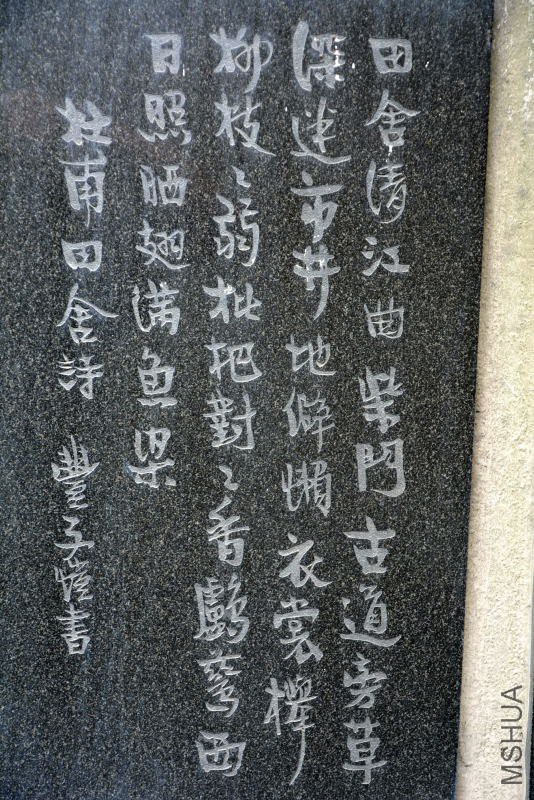 田舍清江曲柴門古道旁草
深迷市井地僻懶衣裳櫸
柳枝〻弱枇杷對〻香鸕鶿西
日照晒翅滿鱼梁
杜甫田舍詩 豐子愷書
MSHUA